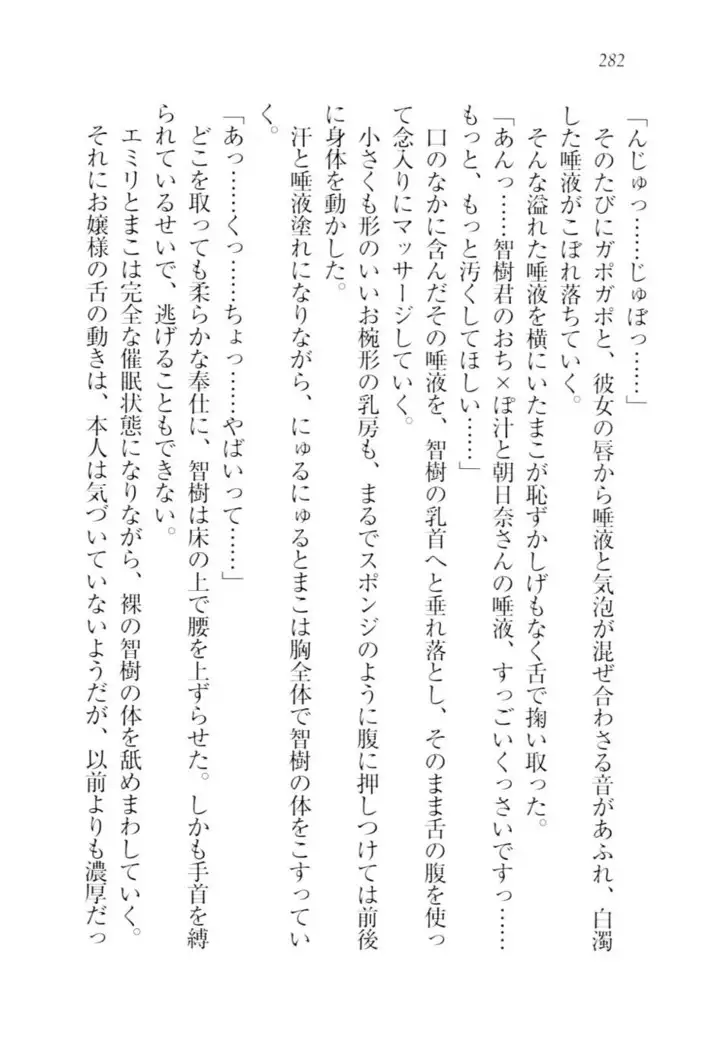 282
「んじゅっ……じゅぽっ……」
そのたびにガポガポと、彼女の唇から唾液と気泡が混ぜ合わさる音があふれ、白濁
した唾液がこぼれ落ちていく。
そんな溢れた唾液を横にいたまこが恥ずかしげもなく舌で掬い取った。
「あんっ……智樹君のおち×ぽ汁と朝日奈さんの唾液、すっごいくっさいですっ……
もっと、もっと汚くしてほしい……」
口のなかに含んだその唾液を、智樹の乳首へと垂れ落とし、そのまま舌の腹を使っ
て念入りにマッサージしていく。
小さくも形のいいお椀形の乳房も、まるでスポンジのように腹に押しつけては前後
に身体を動かした。
汗と唾液塗れになりながら、にゅるにゅるとまこは胸全体で智樹の体をこすってい
く。
「あっ……くっ……ちょっ……やばいって……」
どこを取っても柔らかな奉仕に、智樹は床の上で腰を上ずらせた。しかも手首を縛
られているせいで、逃げることもできない。
エミリとまこは完全な催眠状態になりながら、裸の智樹の体を舐めまわしていく。
それにお嬢様の舌の動きは、本人は気づいていないようだが、以前よりも濃厚だっ